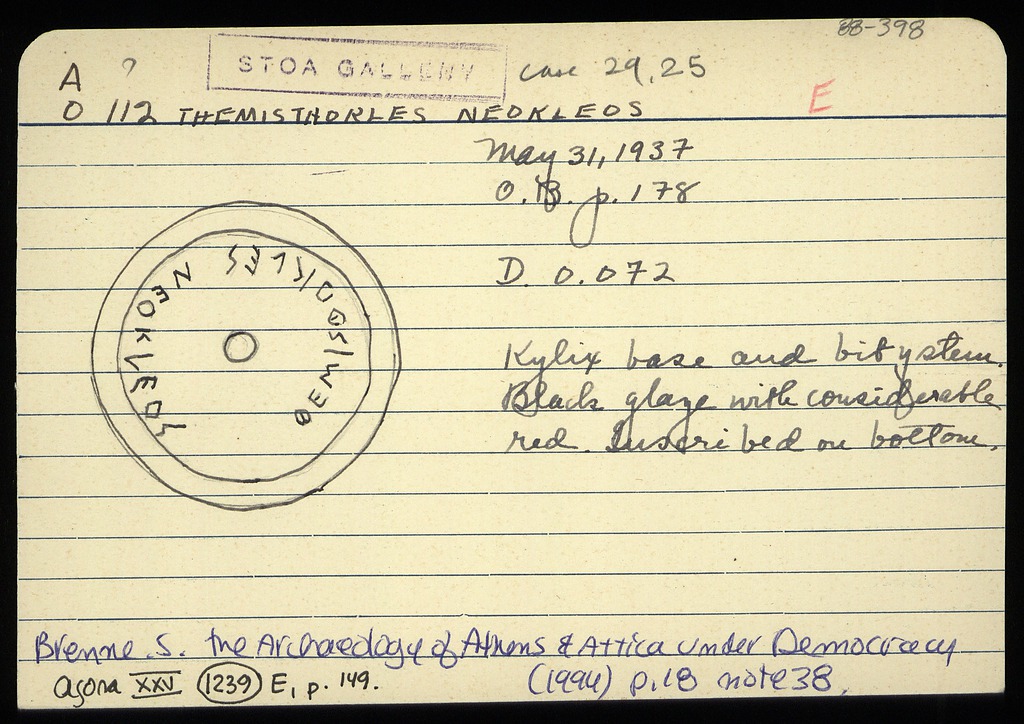 88-398
A ? STOA GALLERY Case 29, 25
E
O 112 THEMISTHOKLES NEOKLEOS
May 31, 1937
O. B. p. 178
D. 0.072
ΘEMISΘOKLES NEOKLEOS
Kylix base and bit of stem.
Black glaze with considerable
red. Inscribed on bottom.
Brenne. S. the Archaeology of Athens & Attica under Democracy
(1994) p. 18 note 38.
Agora XXV 1239 E, p. 149.